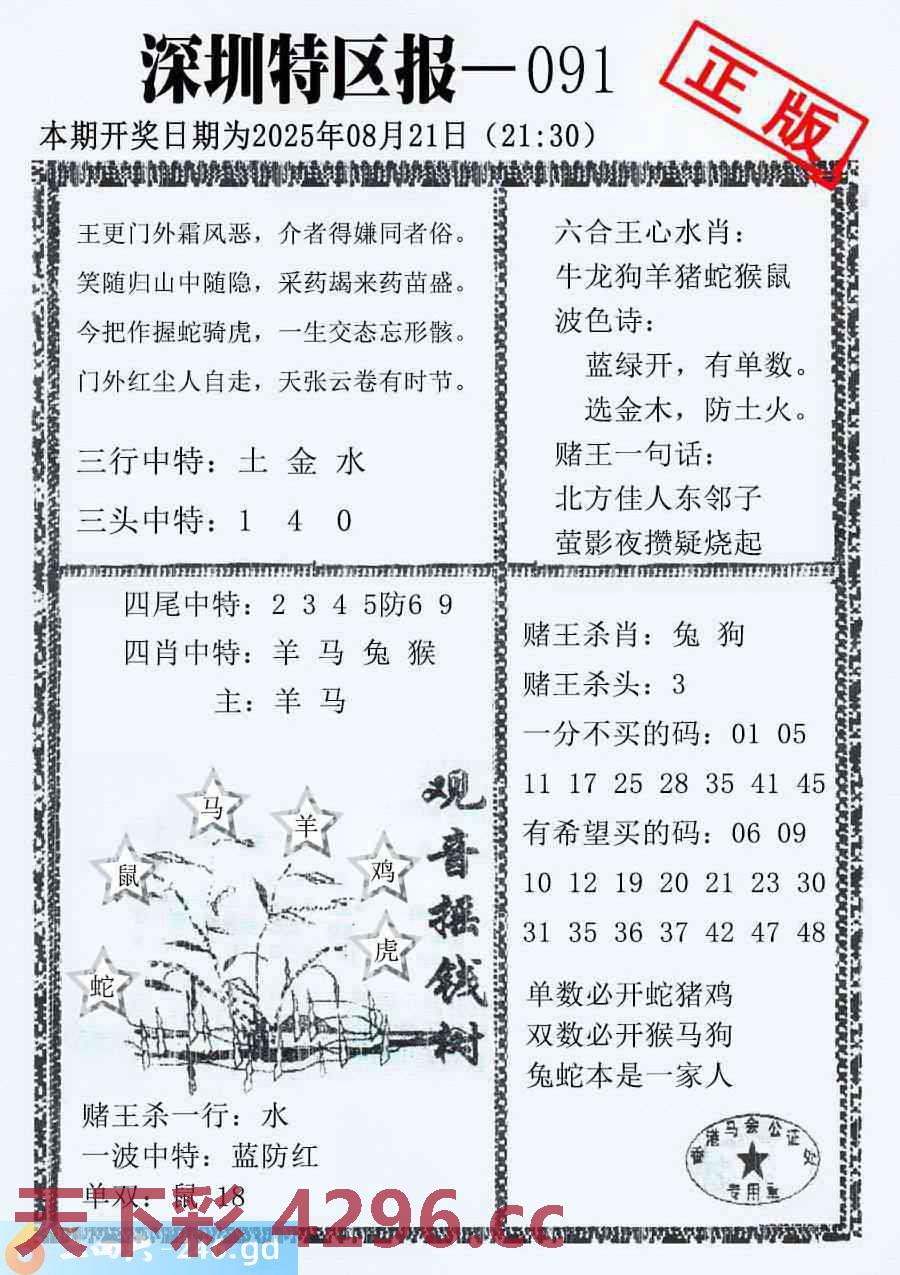 深圳特区报—091
正版
本期开奖日期为2025年08月21日（21:30）
王更门外霜风恶，介者得嫌同者俗。
笑随归山中随隐，采药朅来药苗盛。
今把作握蛇骑虎，一生交态忘形骸。
门外红尘人自走，天张云卷有时节。
三行中特：土 金 水
三头中特：1 4 0
六合王心水肖：
牛龙狗羊猪蛇猴鼠
波色诗：
蓝绿开，有单数。
选金木，防土火。
赌王一句话：
北方佳人东邻子
萤影夜攒疑烧起
四尾中特：2 3 4 5防6 9
四肖中特：羊 马 兔 猴
主：羊 马
马
羊
鼠
鸡
虎
蛇
观音摇钱树
赌王杀一行：水
一波中特：蓝防红
单双：鼠 18
赌王杀肖：兔 狗
赌王杀头：3
一分不买的码：01 05
11 17 25 28 35 41 45
有希望买的码：06 09
10 12 19 20 21 23 30
31 35 36 37 42 47 48
单数必开蛇猪鸡
双数必开猴马狗
兔蛇本是一家人
香港马会公证处
专用章
天下彩 4296.cc
-246.gd